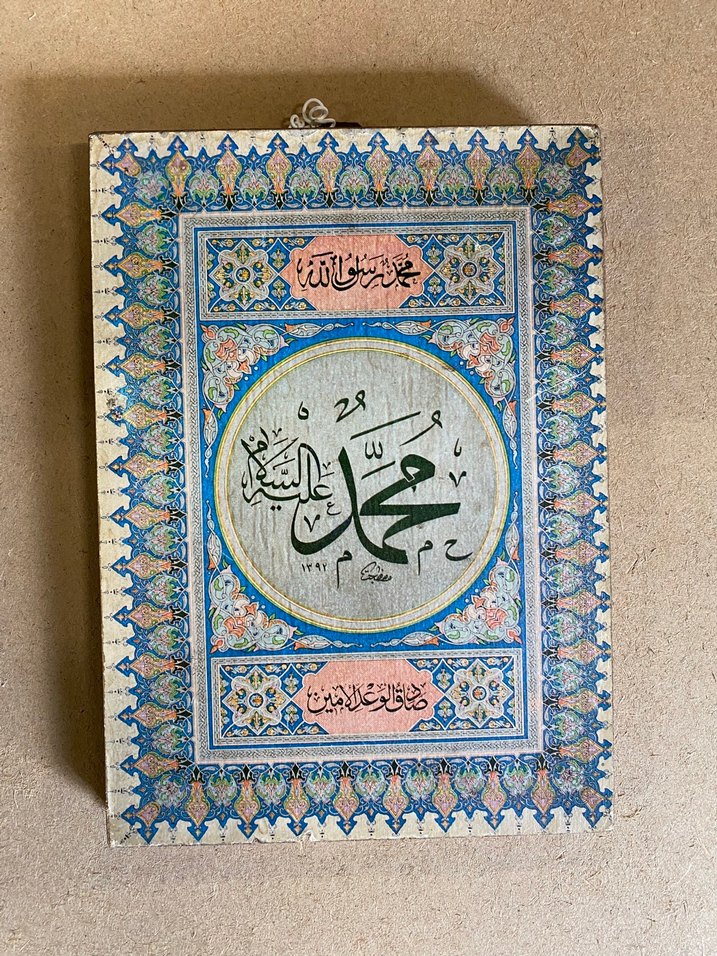 مُحَمَّدٌ رَسُولُ اللّٰهِ
مُحَمَّدٌ
عَلَيْهِ السَّلَامُ
١٣٩٢
صَادِقُ الْوَعْدِ الْاَمِينِ